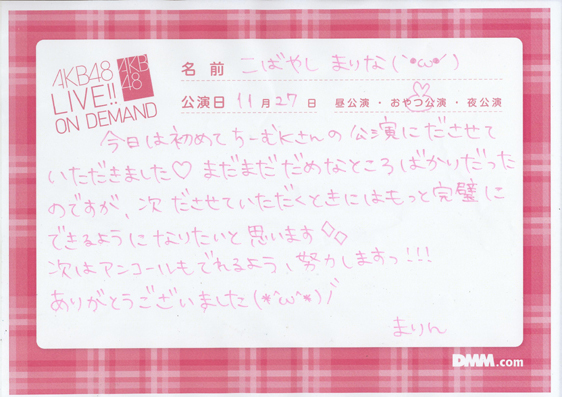 AKB48
LIVE!!
ON DEMAND
AKB
48
名 前 こばやし まりな(`•ω•´)
公演日 11月27日 昼公演・おやつ公演・夜公演
今日は初めてちーむKさんの公演にださせて
いただきました♡ まだまだだめなところばかりだった
のですが、次ださせていただくときにはもっと完璧に
できるようになりたいと思います◇◇
次はアンコールもでれるよう、努力しますっ!!!
ありがとうございました(*^ω^*)ﾉﾞ
まりん
DMM.com